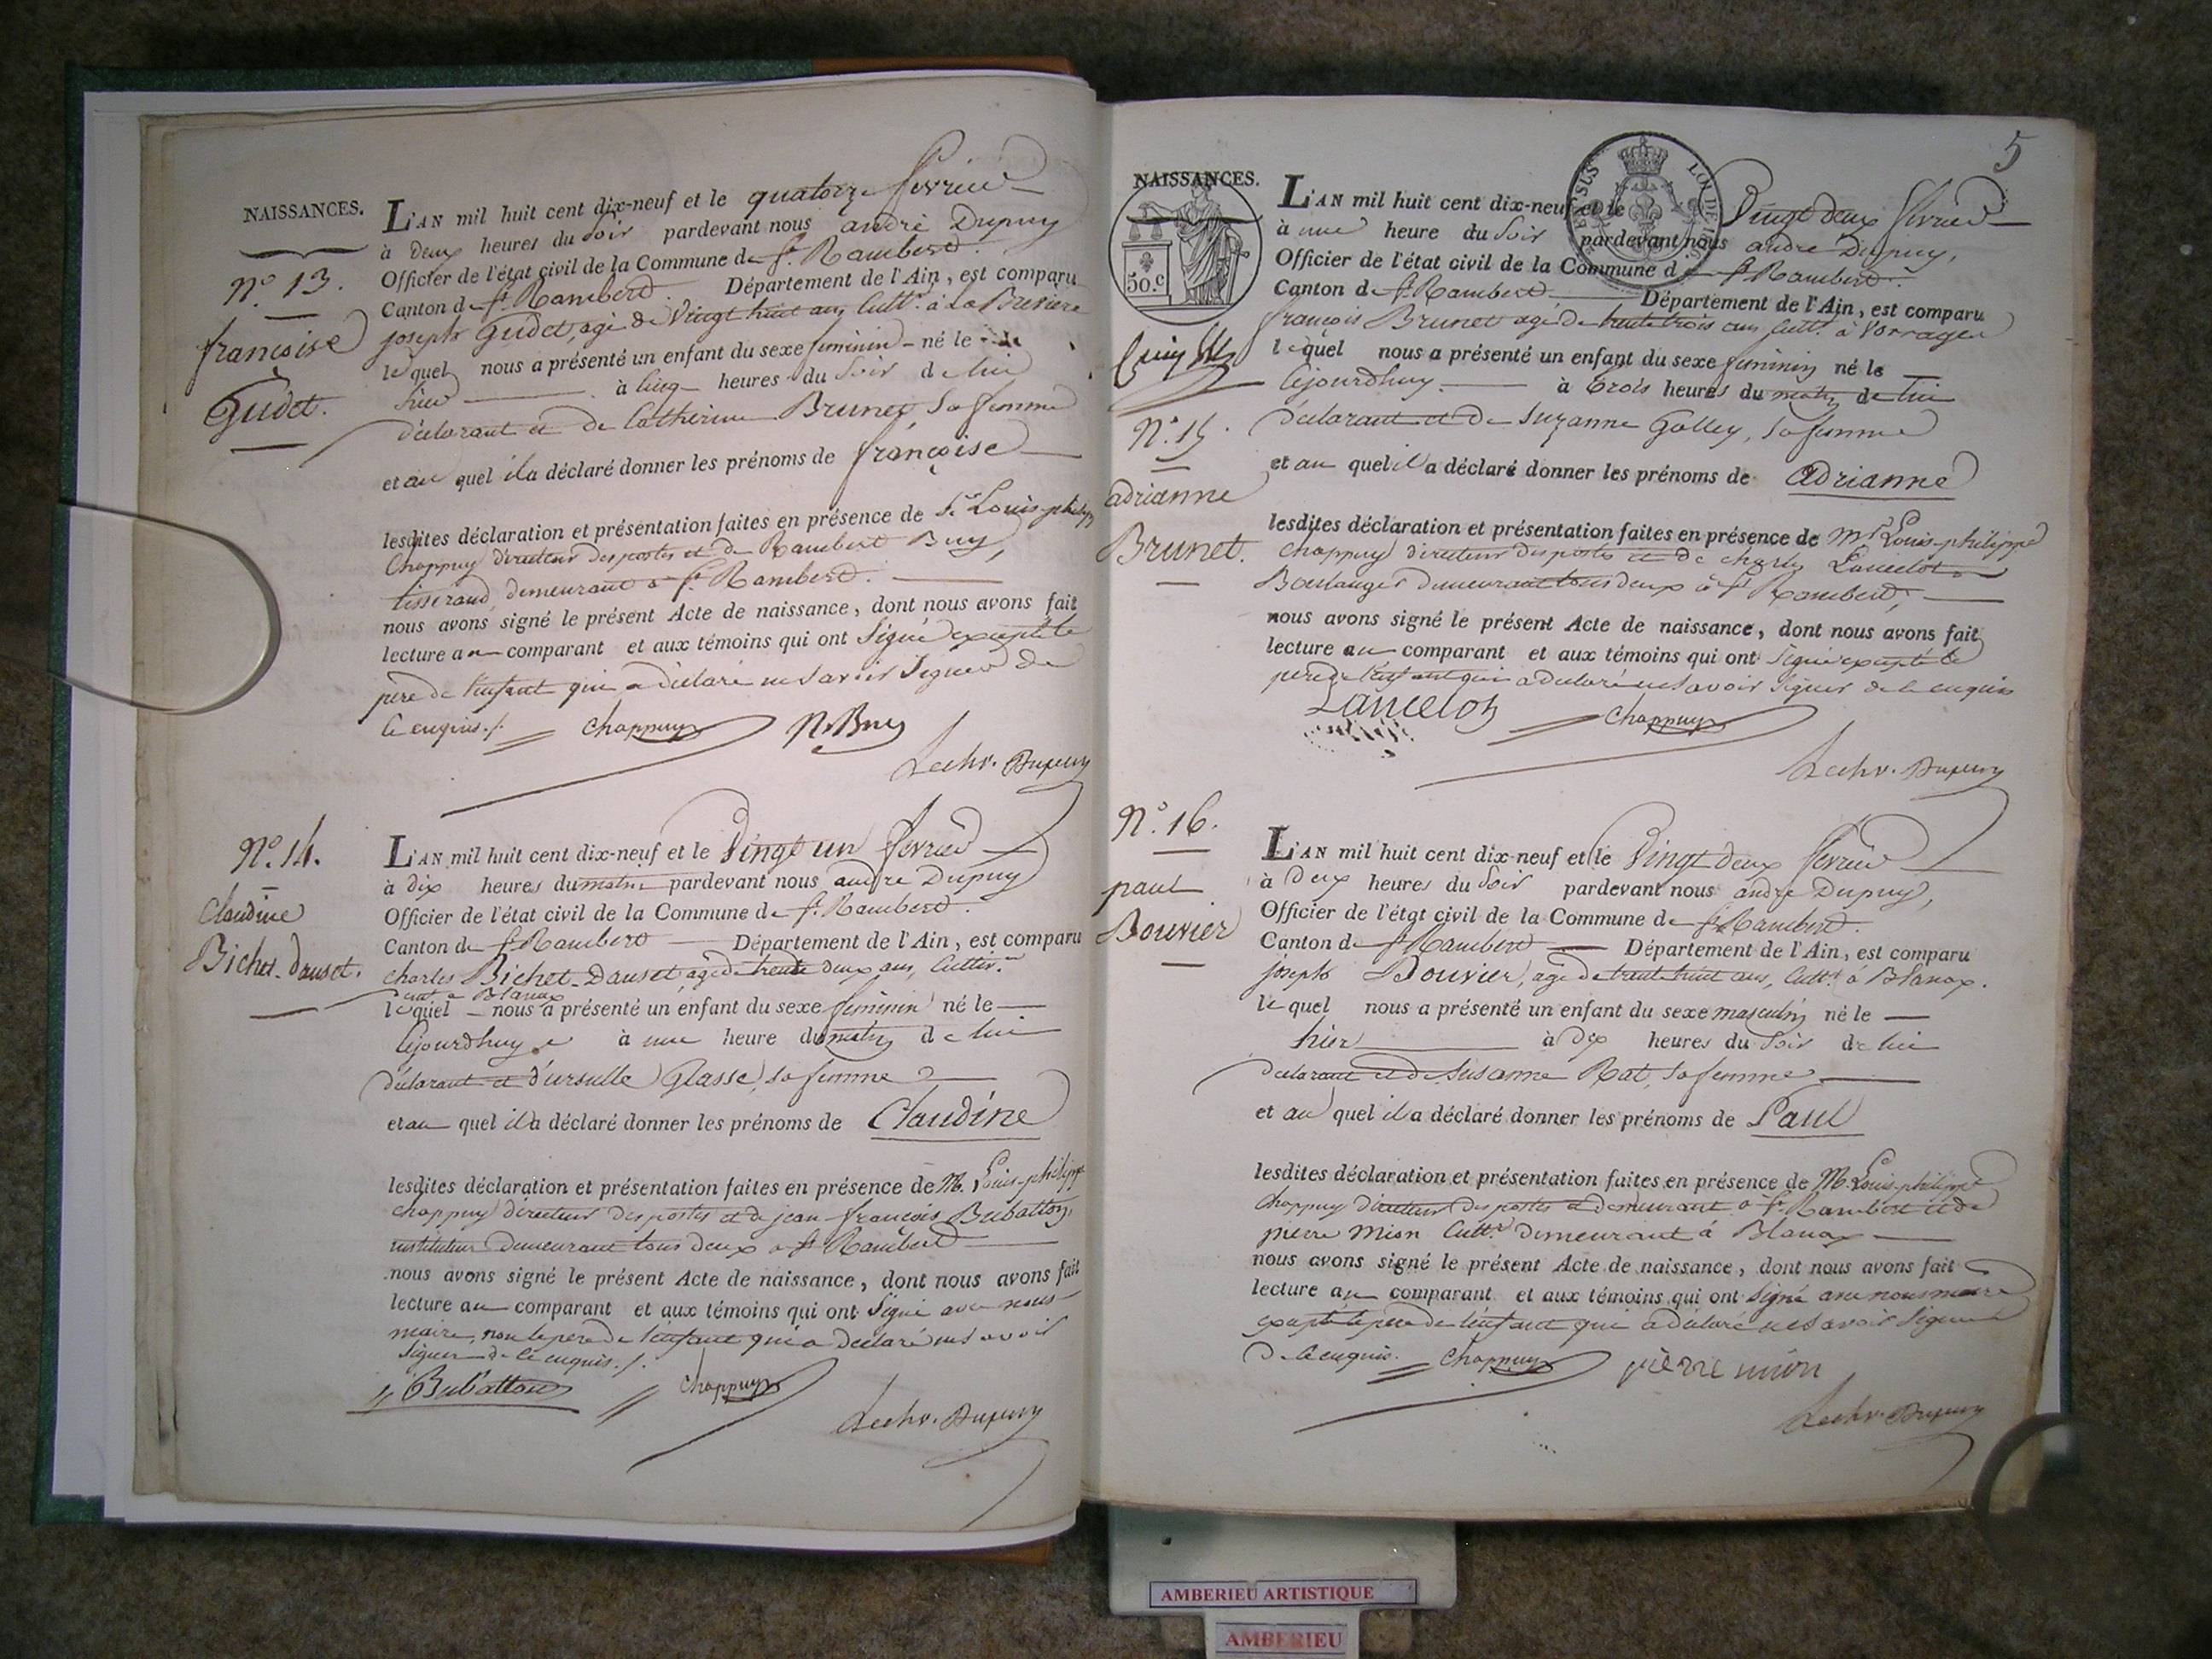 NAISSANCES.
N.° 13.
françoise
Gudet.
L'AN mil huit cent dix-neuf et le quatorze fevrier
à deux heures du soir pardevant nous andré Dupuy
Officier de l'état civil de la Commune de St. Rambert.
Canton de St. Rambert. Département de l'Ain, est comparu
joseph Gudet, agé de vingt huit ans Cultr. à la Breviere
lequel nous a présenté un enfant du sexe feminin né le
hier à cinq heures du soir de lui
déclarant et de Catherine Brunet, sa femme
et au quel il a déclaré donner les prénoms de françoise
lesdites déclaration et présentation faites en présence de Sr. Louis-philippe
Chappuy directeur des postes et de Rambert Buy,
tisserand, demeurant à St. Rambert.
nous avons signé le présent Acte de naissance, dont nous avons fait
lecture au comparant et aux témoins qui ont signé excepté le
pere de l'enfant qui a déclaré ne savoir signer de
ce enquis./.
chappuy R. Buy
Lechr. Dupuy
N.° 14.
Claudine
Bichet-dauset.
L'AN mil huit cent dix-neuf et le vingt un fevrier
à dix heures du matin pardevant nous andre Dupuy
Officier de l'état civil de la Commune de St. Rambert.
Canton de St. Rambert Département de l'Ain, est comparu
charles Bichet-Dauset, agé de trente deux ans, Cultiv.
à Blanaz
lequel nous a présenté un enfant du sexe feminin né le
cejourdhuy à une heure du matin de lui
déclarant et d'ursulle Glasse, sa femme
et au quel il a déclaré donner les prénoms de Claudine
lesdites déclaration et présentation faites en présence de M. Louis-philippe
chappuy directeur des postes et de jean-françois Bubatton,
instituteur demeurant tous deux à St. Rambert
nous avons signé le présent Acte de naissance, dont nous avons fait
lecture au comparant et aux témoins qui ont signé avec nous
maire, non le pere de l'enfant qui a déclaré ne savoir
signer de ce enquis./.
Bubatton chappuy
Lechr. Dupuy
5
NAISSANCES.
50.c
LOI DE
N.° 15.
adrianne
Brunet.
L'AN mil huit cent dix-neuf et le Vingt deux fevrier
à une heure du soir pardevant nous andré Dupuy,
Officier de l'état civil de la Commune de St. Rambert.
Canton de St. Rambert, Département de l'Ain, est comparu
françois Brunet agé de trente trois ans Cultr. à Vorrages
lequel nous a présenté un enfant du sexe feminin né le
cejourdhuy à trois heures du matin de lui
déclarant et de Suzanne Golley, sa femme
et au quel il a déclaré donner les prénoms de adrianne
lesdites déclaration et présentation faites en présence de Mr. Louis-philippe
chappuy directeur des postes et de charles Lancelot
Boulanger demeurant tous deux à St. Rambert,
nous avons signé le présent Acte de naissance, dont nous avons fait
lecture au comparant et aux témoins qui ont signé excepté le
pere de l'enfant qui a déclaré ne savoir signer de ce enquis
Lancelot chappuy
Lechr. Dupuy
N.° 16.
paul
Bouvier
L'AN mil huit cent dix-neuf et le vingt deux fevrier
à deux heures du soir pardevant nous andré Dupuy,
Officier de l'état civil de la Commune de St. Rambert.
Canton de St. Rambert Département de l'Ain, est comparu
joseph Bouvier, agé de trente huit ans, Cultr. à Blanaz.
lequel nous a présenté un enfant du sexe masculin né le
hier à dix heures du soir de lui
déclarant et de Susanne Rat, sa femme
et au quel il a déclaré donner les prénoms de Paul
lesdites déclaration et présentation faites en présence de M. Louis-philippe
chappuy directeur des postes et demeurant à St. Rambert et de
pierre Mion Cultr. demeurant à Blanaz
nous avons signé le présent Acte de naissance, dont nous avons fait
lecture au comparant et aux témoins qui ont signé avec nous maire
excepté le pere de l'enfant qui a déclaré ne savoir signer
de ce enquis. chappuy pierre mion
Lechr. Dupuy
AMBERIEU ARTISTIQUE
AMBERIEU